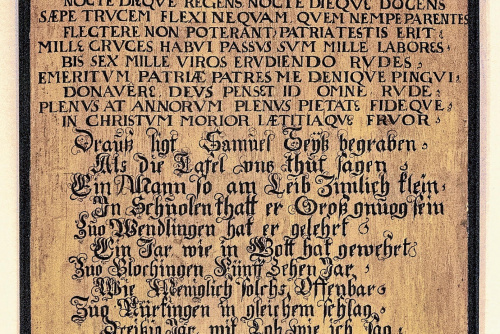 NOCTE DIEQVE REGENS NOCTE DIEQVE DOCENS
SÆPE TRVCEM FLEXI NEQVAM, QVEM NEMPE PARENTES
FLECTERE NON POTERANT; PATRIA TESTIS ERIT
MILLE CRVCES HABVI PASSVS SVM MILLE LABORES
BIS SEX MILLE VIROS ERVDIENDO RVDES
EMERITVM PATRIÆ PATRES ME DENIQVE PINGVI
DONAVERE, DEVS PENSET ID OMNE RVDE
PLENVS AT ANNORVM PLENVS PIETATE FIDEQVE
IN CHRISTVM MORIOR LÆTITIAQVE FRVOR
Drauß ligt Samuel begraben
Als die Tafel vnß thut sagen
Ein Mann so am Leib Zimlich klein
In Schuolen thatt er Groß gnuog sein
Zuo Wendlingen hat er gelehrt
Ein Jar wie in Gott hat gewehrt
Zuo Blochingen Fünff Zehen Jar
Wie Meniglich solchs Offenbar
Zuo Nürtingen in gleichem schlag
Dreißig Jar, mit Lob wie ich sag